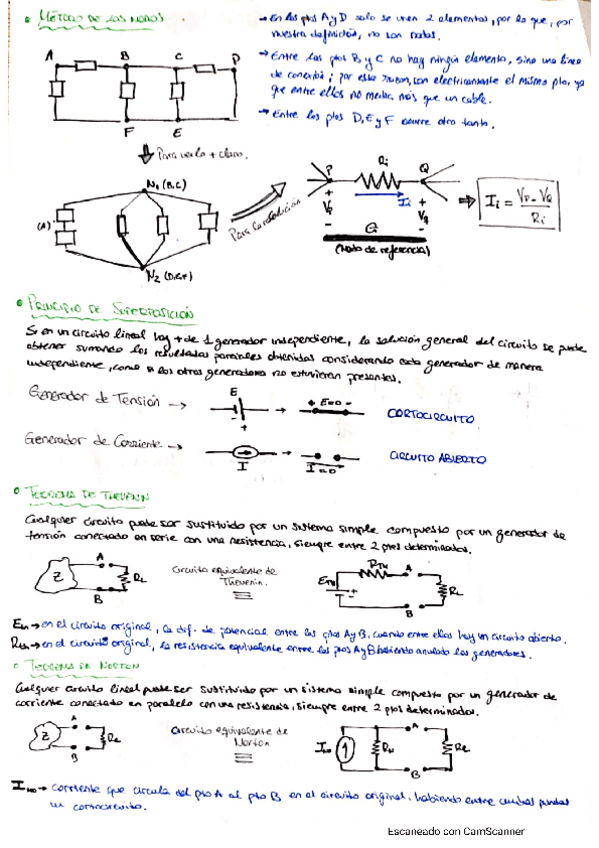 • MÉTODO DE LOS NODOS
→ En los ptos A y D solo se unen 2 elementos, por lo que, por
nuestra definición, no son nodos.
→ Entre los ptos B y C no hay ningún elemento, sino una línea
de conexión; por esta razón, son electricamente el mismo pto, ya
que entre ellos no media más que un cable.
→ Entre los ptos D, E y F ocurre otro tanto.
A B C D
F E
Para verlo + claro.
N₁ (B,C)
(A)
N₂ (D,E,F)
Para la resolución
P Ri Q
+ Ii +
Vp Vq
- -
G
(Nodo de referencia)
Ii = Vp - VQ / Ri
• PRINCIPIO DE SUPERPOSICIÓN
Si en un circuito lineal hay + de 1 generador independiente, la solución general del circuito se puede
obtener sumando los resultados parciales obtenidos considerando cada generador de manera
independiente, como si los otros generadores no estuvieran presentes.
Generador de Tensión → E - + → + E=0 - CORTOCIRCUITO
Generador de Corriente → I → I=0 CIRCUITO ABIERTO
• TEOREMA DE THEVENIN
Cualquier circuito puede ser sustituido por un sistema simple compuesto por un generador de
tensión conectado en serie con una resistencia, siempre entre 2 ptos determinados.
Z A B RL
Circuito equivalente de
Thevenin.
ETH RTH A B RL
ETH → en el circuito original, la dif. de potencial entre los ptos A y B, cuando entre ellos hay un circuito abierto.
RTH → en el circuito original, la resistencia equivalente entre los ptos A y B habiendo anulado los generadores.
• TEOREMA DE NORTON
Cualquier circuito lineal puede ser sustituido por un sistema simple compuesto por un generador de
corriente conectado en paralelo con una resistencia, siempre entre 2 ptos determinados.
Z A B RL
Circuito equivalente de
Norton
A B RL
→ corriente que circula del pto A al pto B en el circuito original, habiendo entre ambos puntos
un cortocircuito.
Escaneado con CamScanner